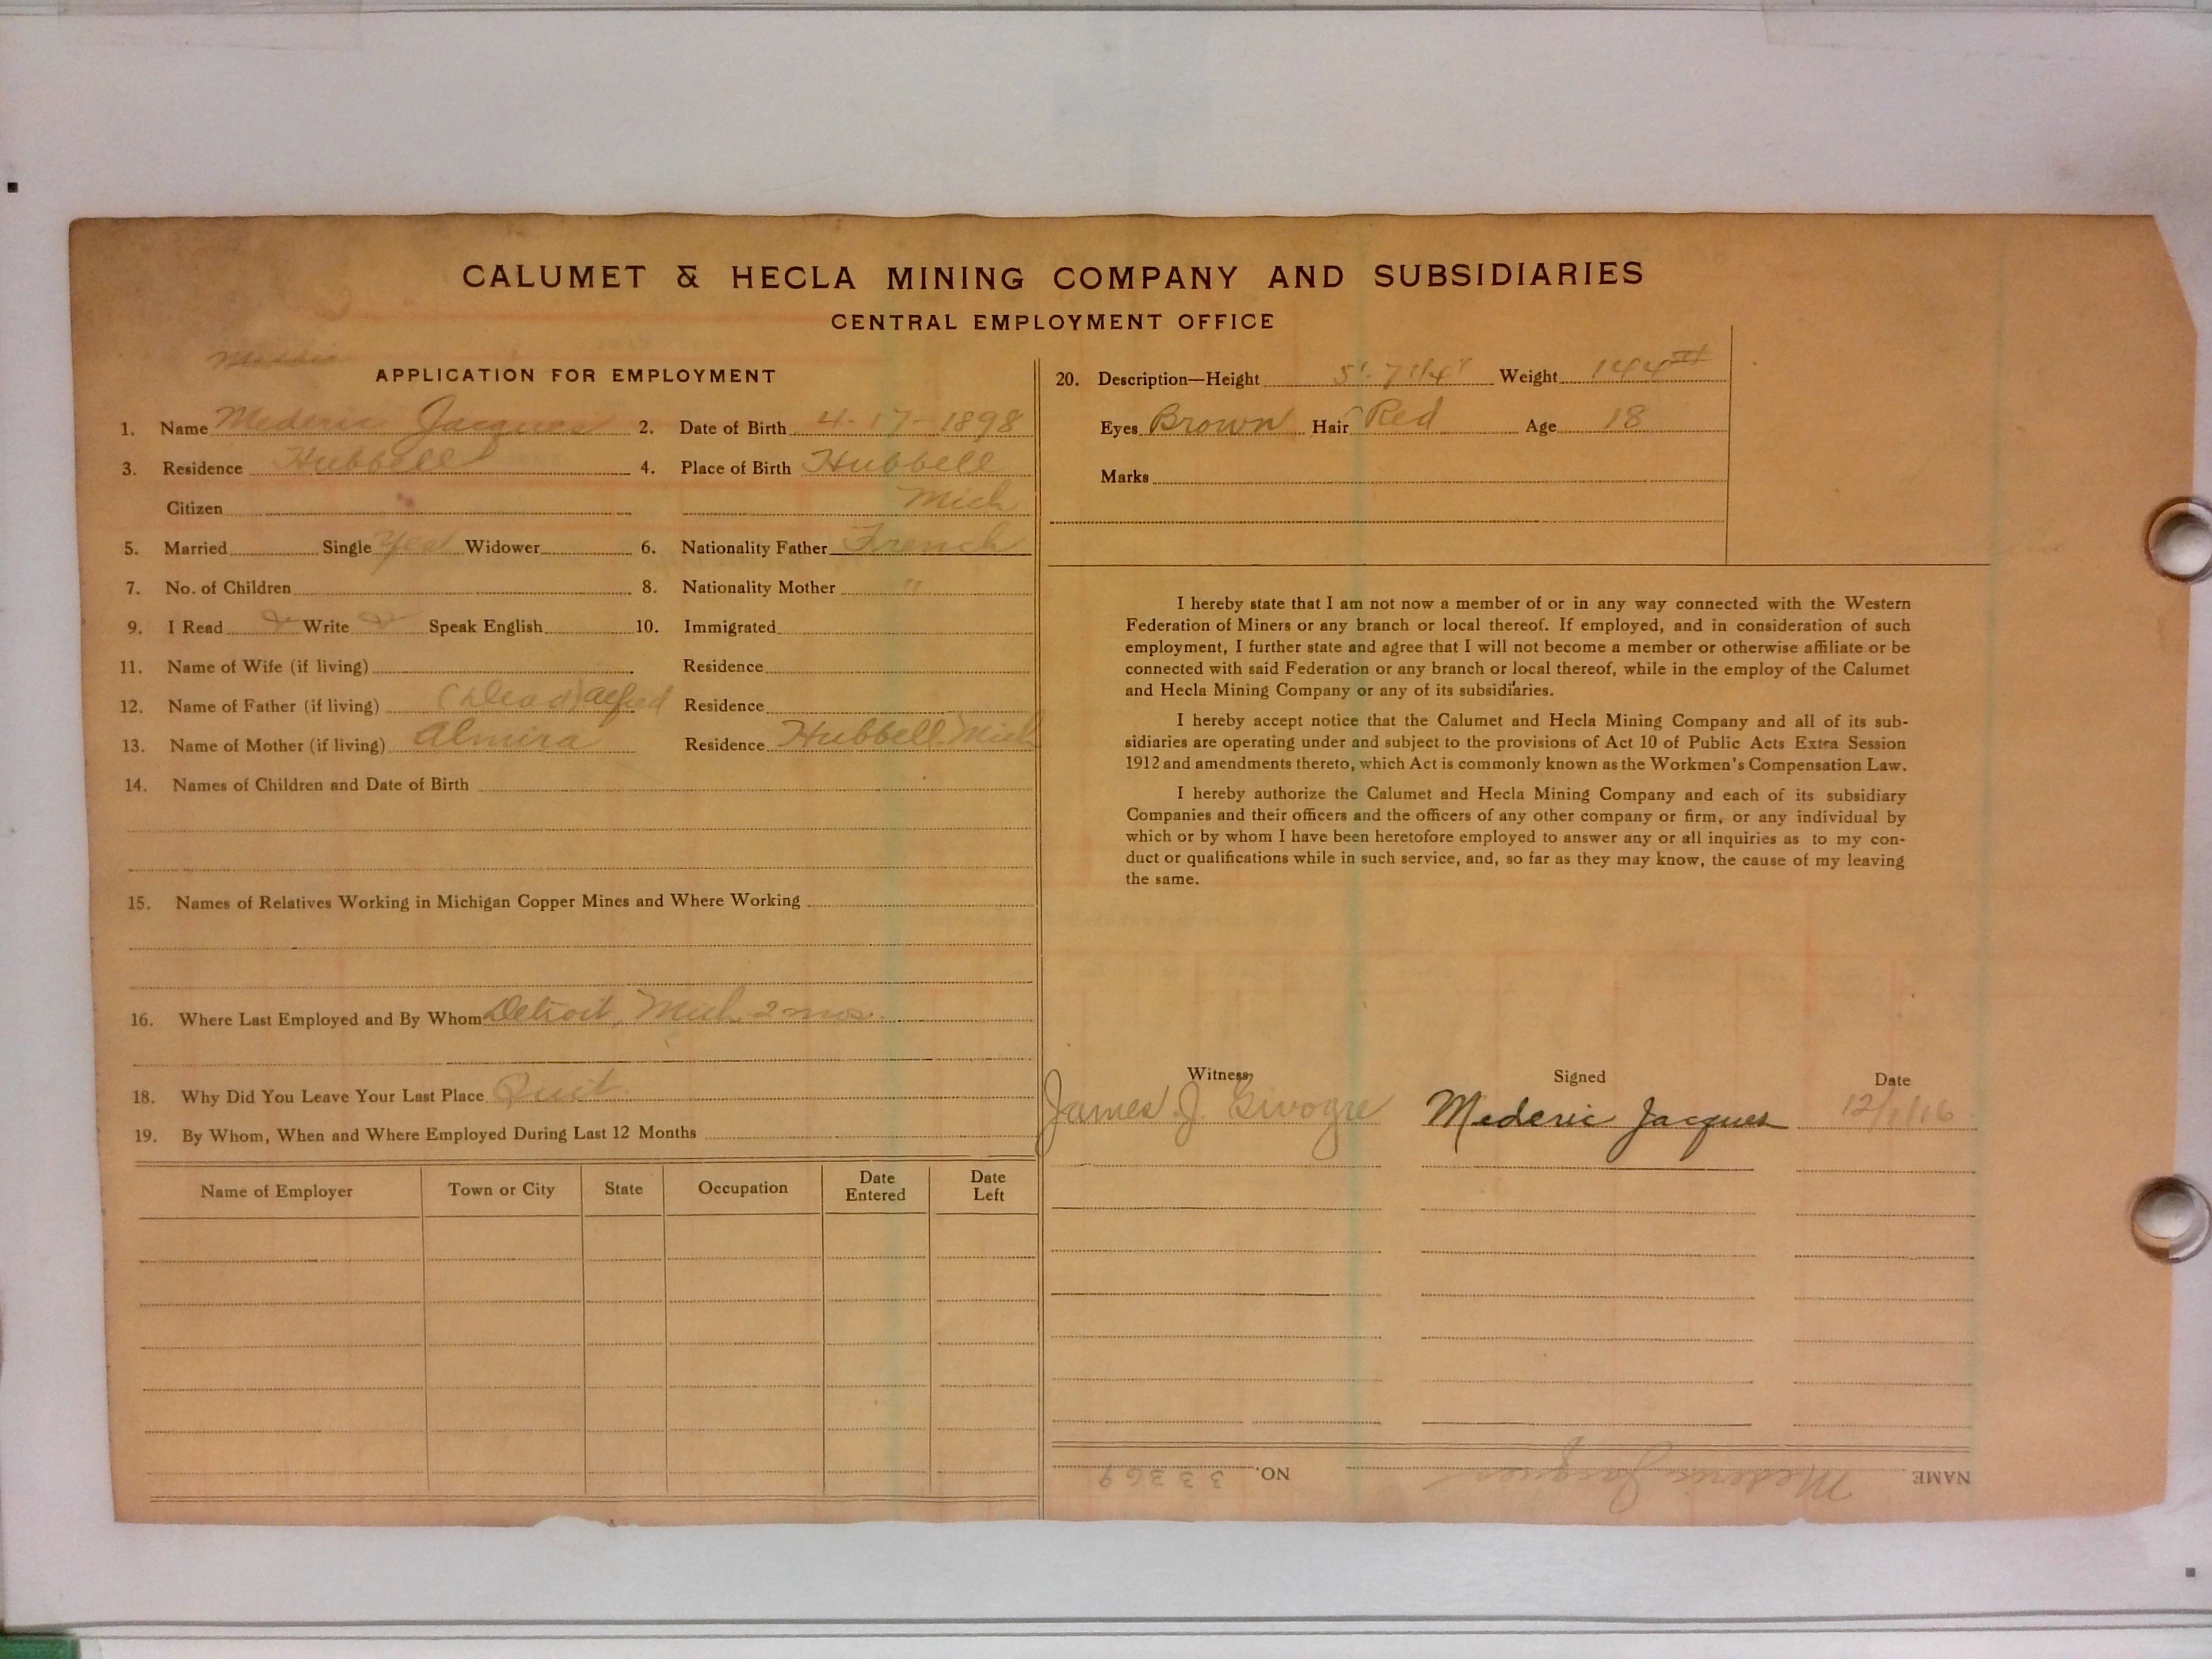 CALUMET & HECLA MINING COMPANY AND SUBSIDIARIES
CENTRAL EMPLOYMENT OFFICE
APPLICATION FOR EMPLOYMENT
1. Name Mederic Jacques 2. Date of Birth 4-17-1898
3. Residence Hubbell 4. Place of Birth Hubbell
Citizen Mich
5. Married Single Yes Widower 6. Nationality Father French
7. No. of Children 8. Nationality Mother "
9. I Read Write Speak English 10. Immigrated
11. Name of Wife (if living) Residence
12. Name of Father (if living) (Dead) Alfred Residence
13. Name of Mother (if living) Almira Residence Hubbell Mich
14. Names of Children and Date of Birth
15. Names of Relatives Working in Michigan Copper Mines and Where Working
16. Where Last Employed and By Whom Detroit, Mich. 2 mos.
18. Why Did You Leave Your Last Place Quit
19. By Whom, When and Where Employed During Last 12 Months
Name of Employer Town or City State Occupation Date Entered Date Left
20. Description—Height 5'. 7 1/4" Weight 144
Eyes Brown Hair Red Age 18
Marks
I hereby state that I am not now a member of or in any way connected with the Western
Federation of Miners or any branch or local thereof. If employed, and in consideration of such
employment, I further state and agree that I will not become a member or otherwise affiliate or be
connected with said Federation or any branch or local thereof, while in the employ of the Calumet
and Hecla Mining Company or any of its subsidiaries.
I hereby accept notice that the Calumet and Hecla Mining Company and all of its sub-
sidiaries are operating under and subject to the provisions of Act 10 of Public Acts Extra Session
1912 and amendments thereto, which Act is commonly known as the Workmen's Compensation Law.
I hereby authorize the Calumet and Hecla Mining Company and each of its subsidiary
Companies and their officers and the officers of any other company or firm, or any individual by
which or by whom I have been heretofore employed to answer any or all inquiries as to my con-
duct or qualifications while in such service, and, so far as they may know, the cause of my leaving
the same.
Witness Signed Date
James J. Mederic Jacques 12/1/16
NAME Mederic Jacques NO. 33369